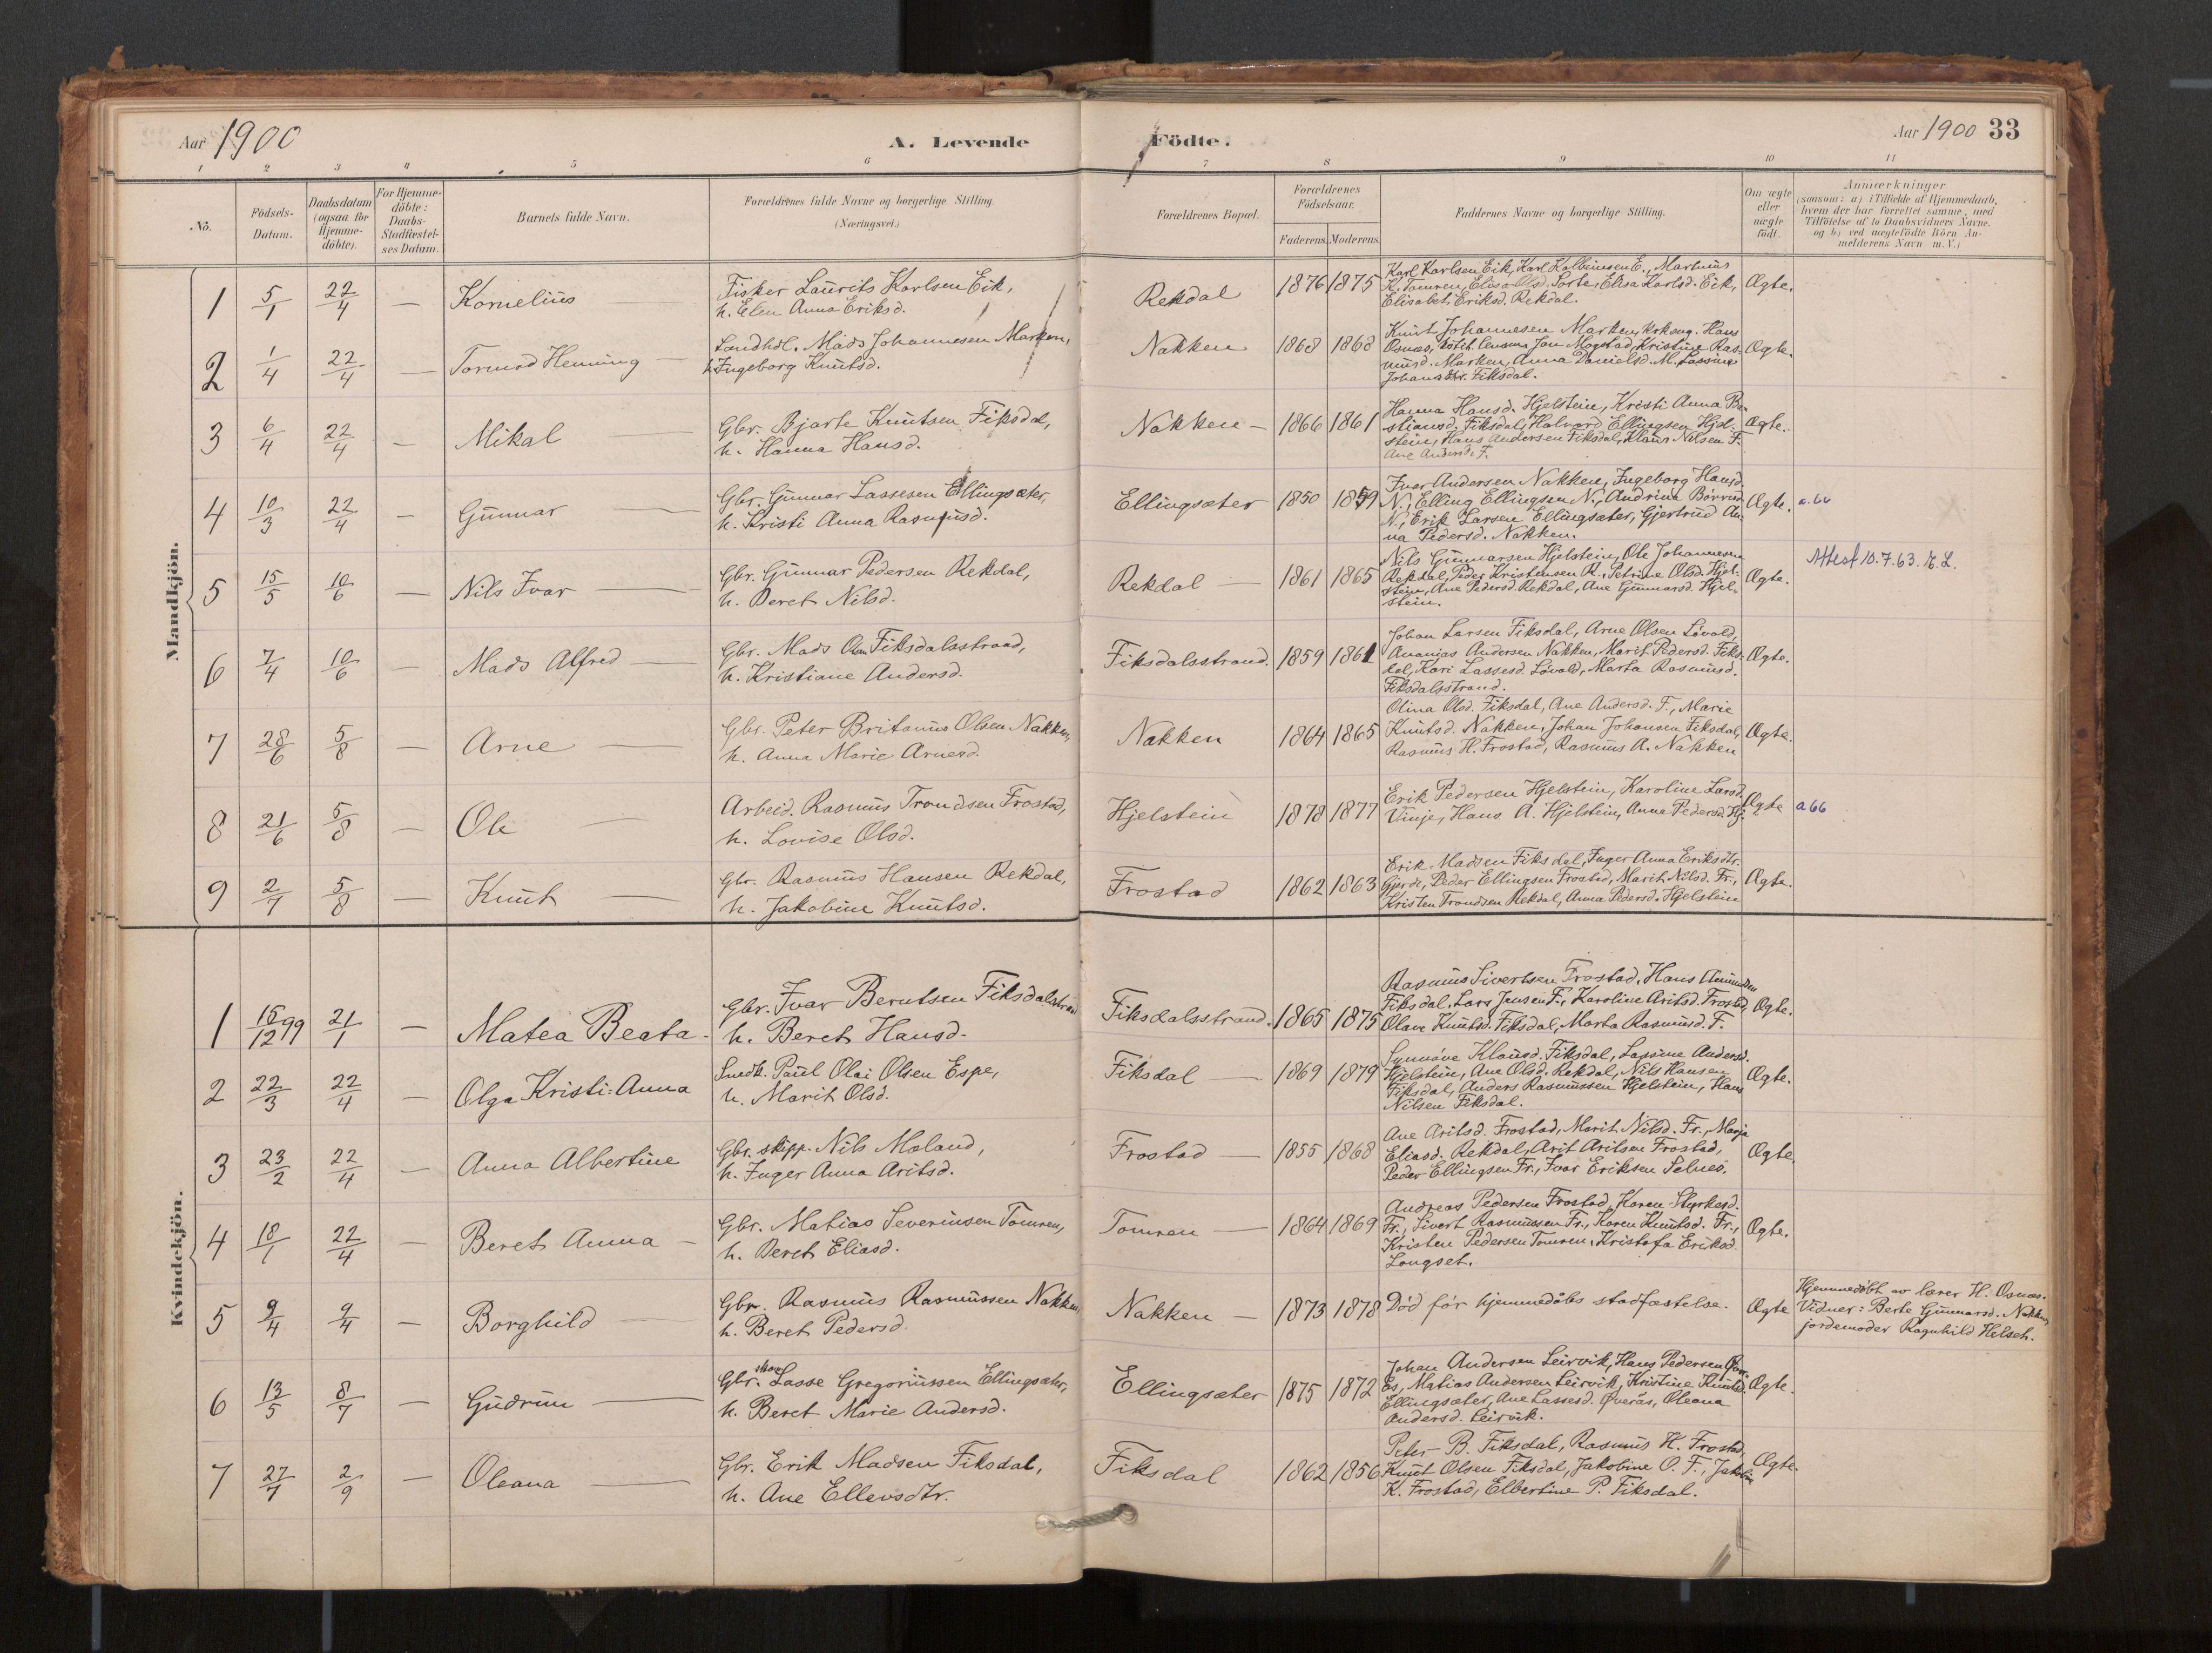 Aar 1900
A. Levende Födte.
Aar 1900 33
1 2 3 4 5 6 7 8 9 10 11
No.
Födsels-Datum.
Daabsdatum (ogsaa for Hjemme-döbte).
For Hjemme-döbte: Daabs-Stadfæstel-ses Datum.
Barnets fulde Navn.
Forældrenes fulde Navne og borgerlige Stilling. (Næringsvei.)
Forældrenes Bopæl.
Forældrenes Födselsaar.
Faderens. Moderens.
Faddernes Navne og borgerlige Stilling.
Om ægte eller uægte födt.
Anmærkninger
(saasom: a) i Tilfælde af Hjemmedaab,
hvem der har forrettet samme, med
Tilföielse af to Daabsvidners Navne,
og b) ved uægtefödte Börn An-
melderens Navn m. V.)
Mandkjön.
1 5/1 22/4 — Kornelius
Fisker Laurits Karlsen Eik,
h. Elen Anna Eriksd.
Rekdal 1876 1875
Karl Karlsen Eik, Karl Kolbeinsen E., Martinus
K. Tomren, Elias Olsd. Sorte, Elisa Karlsd. Eik,
Elisabet Eriksd. Rekdal.
Ægte.
2 1/4 22/4 — Tormod Henning —
Landhdl. Mads Johannesen Marken,
h. Ingeborg Knutsd.
Nakken 1868 1868
Knut Johannesen Marken, Hans
Osnæs, Jon Mogstad, Kristine Ras-
musd. Marken, Anna Danielsd. M. Lassine
Johansdtr. Fiksdal.
Ægte.
3 6/4 22/4 — Mikal —
Gbr. Bjarte Knutsen Fiksdal,
h. Hanna Hansd.
Nakken — 1866 1861
Hanna Hansd. Hjelstein, Kristi Anna Ba-
stiansd. Fiksdal, Halvard Ellingsen Hjel-
stein, Hans Andersen Fiksdal, Klaus Nilsen F.
Ane Andersd. F.
Ægte.
4 10/3 22/4 — Gunnar —
Gbr. Gunnar Lassesen Ellingsæter,
h. Kristi Anna Rasmusd.
Ellingsæter 1850 1859
Ivar Andersen Nakken, Ingeborg Hansd.
N., Elling Ellingsen N., Andrina
N., Erik Larsen Ellingsæter, Gjertrud An-
na Pedersd. Nakken.
Ægte. a. 66
5 15/5 10/6 — Nils Ivar —
Gbr. Gunnar Pedersen Rekdal,
h. Beret Nilsd.
Rekdal — 1861 1865
Nils Gunnarsen Hjelstein, Ole Johannesen
Rekdal, Peder Kristensen R., Petrine Olsd. Hjel-
stein, Ane Pedersd. Rekdal, Ane Gunnarsd. Hjel-
stein.
Ægte.
Attest 10.7.63. K. L.
6 7/4 10/6 — Mads Alfred —
Gbr. Mads Olsen Fiksdalsstrand,
h. Kristiane Andersd.
Fiksdalsstrand. 1859 1861
Johan Larsen Fiksdal, Arne Olsen Løvold,
Ananias Andersen Nakken, Marit Pedersd. Fiks-
dal, Kari Lassesd. Løvold, Marta Rasmusd.
Fiksdalsstrand.
Ægte.
7 28/6 5/8 — Arne —
Gbr. Peter Britanus Olsen Nakken,
h. Anna Marie Arnesd.
Nakken 1864 1865
Olina Olsd. Fiksdal, Ane Andersd. F., Marie
Knutsd. Nakken, Johan Johansen Fiksdal,
Rasmus H. Frostad, Rasmus A. Nakken
Ægte.
8 21/6 5/8 — Ole —
Arbeid. Rasmus Trondsen Frostad,
h. Lovise Olsd.
Hjelstein 1878 1877
Erik Pedersen Hjelstein, Karoline Larsd.
Vinje, Hans A. Hjelstein, Anne Pedersd. Hj.
Ægte a 66
9 2/7 5/8 — Knut —
Gbr. Rasmus Hansen Rekdal,
h. Jakobine Knutsd.
Frostad 1862 1863
Erik Madsen Fiksdal, Inger Anna Eriksdtr.
Gjerde, Peder Ellingsen Frostad, Marit Nilsd. Fr.,
Kristen Trondsen Rekdal, Anna Pedersd. Hjelstein
Ægte.
Kvindekjön.
1 15/12 99 21/1 — Matea Beata —
Gbr. Ivar Berntsen Fiksdalstrand
h. Beret Hansd.
Fiksdalsstrand. 1865 1875
Rasmus Sivertsen Frostad, Hans Amundsen
Fiksdal, Lars Jensen F., Karoline Aritsd. Frostad,
Olave Knutsd. Fiksdal, Marta Rasmusd. F.
Ægte.
2 22/3 22/4 — Olga Kristi-Anna
Snedk. Paul Olai Olsen Espe,
h. Marit Olsd.
Fiksdal — 1869 1879
Synnøve Klausd. Fiksdal, Lassine Andersd.
Hjelstein, Ane Olsd. Rekdal, Nils Hansen
Fiksdal, Anders Rasmussen Hjelstein, Hans
Nilsen Fiksdal.
Ægte.
3 23/2 22/4 — Anna Albertine
Gbr. skipp. Nils Moland,
h. Inger Anna Aritsd.
Frostad — 1855 1868
Ane Aritsd. Frostad, Marit Nilsd. Fr., Marja
Eliasd. Rekdal, Arit Aritsen Frostad,
Peder Ellingsen Fr., Ivar Eriksen Selnes.
Ægte.
4 18/1 22/4 — Beret Anna —
Gbr. Matias Severinsen Tomren,
h. Beret Eliasd.
Tomren — 1864 1869
Andreas Pedersen Frostad, Karen Styrkesd.
Fr., Sivert Rasmussen Fr., Karen Knutsd. Fr.,
Kristen Pedersen Tomren, Kristofa Eriksd.
Longset.
Ægte.
5 9/4 9/4 — Borghild —
Gbr. Rasmus Rasmussen Nakken,
h. Beret Pedersd.
Nakken — 1873 1878
Død før hjemmedåbs stadfæstelse.
Ægte
Hjemmedøbt av lærer H. Osnæs.
Vidner: Berte Gunnarsd. Nakken,
jordemoder Ragnhild Helseth.
6 13/5 8/7 — Gudrun —
Gbr. Lasse Gregoriussen Ellingsæter,
h. Beret Marie Andersd.
Ellingsæter 1875 1872
Johan Andersen Leirvik, Hans Pedersen
Matias Andersen Leirvik, Kristine Knutsd.
Ellingsæter, Ane Lassesd. Øverås, Oleana
Andersd. Leirvik.
Ægte.
7 27/7 2/9 — Oleana —
Gbr. Erik Madsen Fiksdal,
h. Ane Ellevsdtr.
Fiksdal 1862 1856
Peter B. Fiksdal, Rasmus K. Frostad,
Knut Olsen Fiksdal, Jakobine O. F., Jakobine
K. Frostad, Elbertine P. Fiksdal.
Ægte.